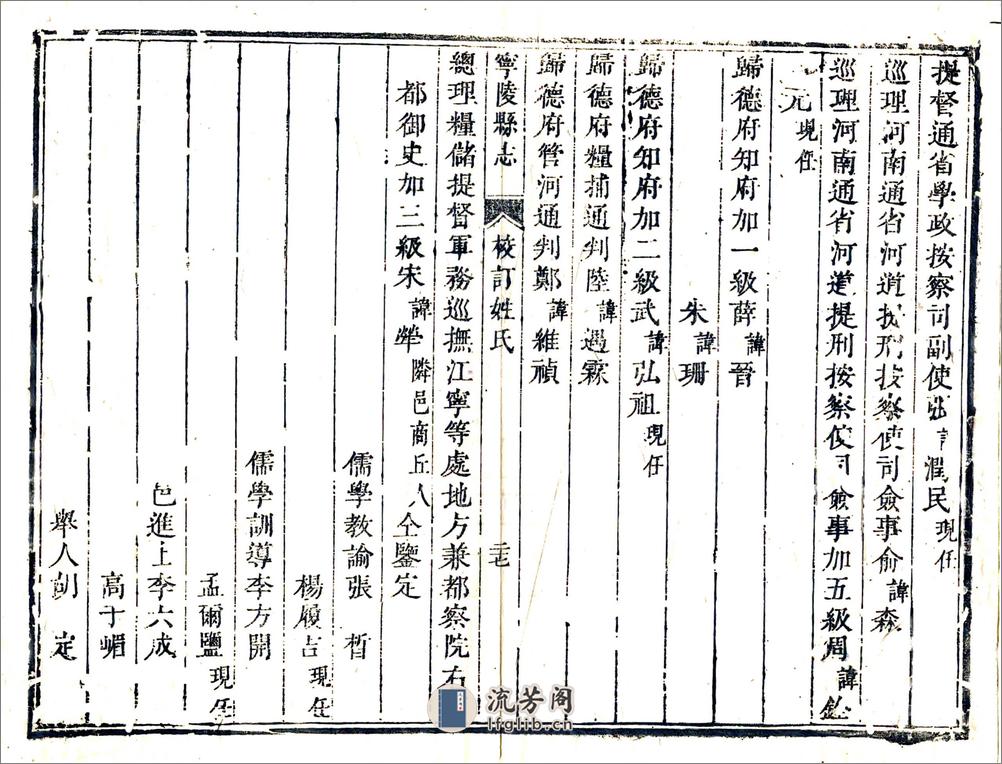 提督通省學政按察司副使張諱潤民現任
巡理河南通省河道提刑按察使司僉事俞諱森
巡理河南通省河道提刑按察使司僉事加五級周諱銓
元現任
歸德府知府加一級薛諱晉
朱諱珊
歸德府知府加二級武諱弘祖現任
歸德府糧捕通判陸諱遇霖
歸德府管河通判鄭諱維禎
寧陵縣志 校訂姓氏
總理糧儲提督軍務巡撫江寧等處地方兼都察院右
都御史加三級宋諱犖隣邑商丘人仝鑒定
儒學教諭張 晳
楊履吉現任
儒學訓導李方開
孟爾鹽現任
邑進士李六成
高于嵋
舉人胡 定
流芳阁
lfglib.cn